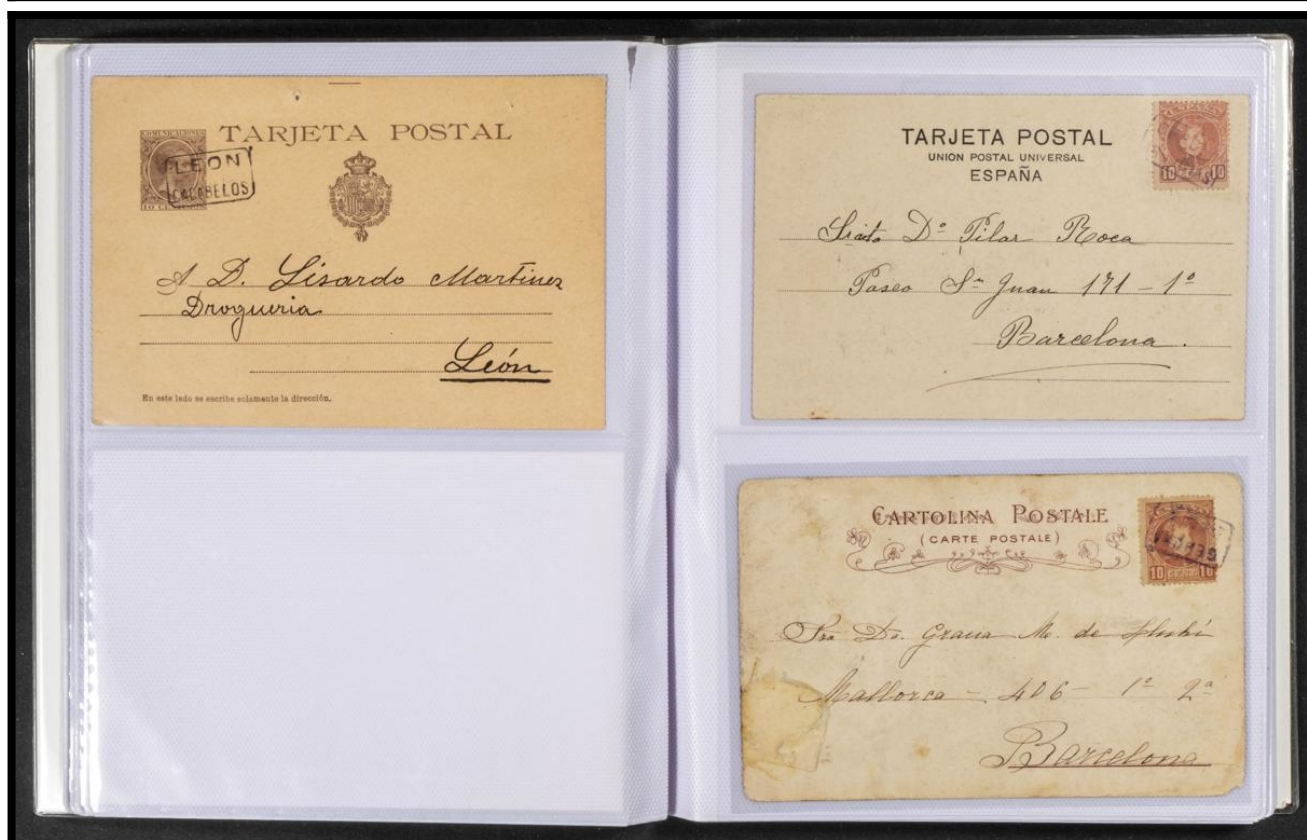 COMUNICACIONES
TARJETA POSTAL
LEON
CACABELOS
A D. Lisardo Martinez
Drogueria
León
En este lado se escribe solamente la dirección.
TARJETA POSTAL
UNION POSTAL UNIVERSAL
ESPAÑA
10 10
D.ª Pilar Roca
Paseo Sn Juan 171 - 1º
Barcelona.
CARTOLINA POSTALE
(CARTE POSTALE)
10 10
Sra Da. M. de
Mallorca - 406 - 1º 2ª
Barcelona